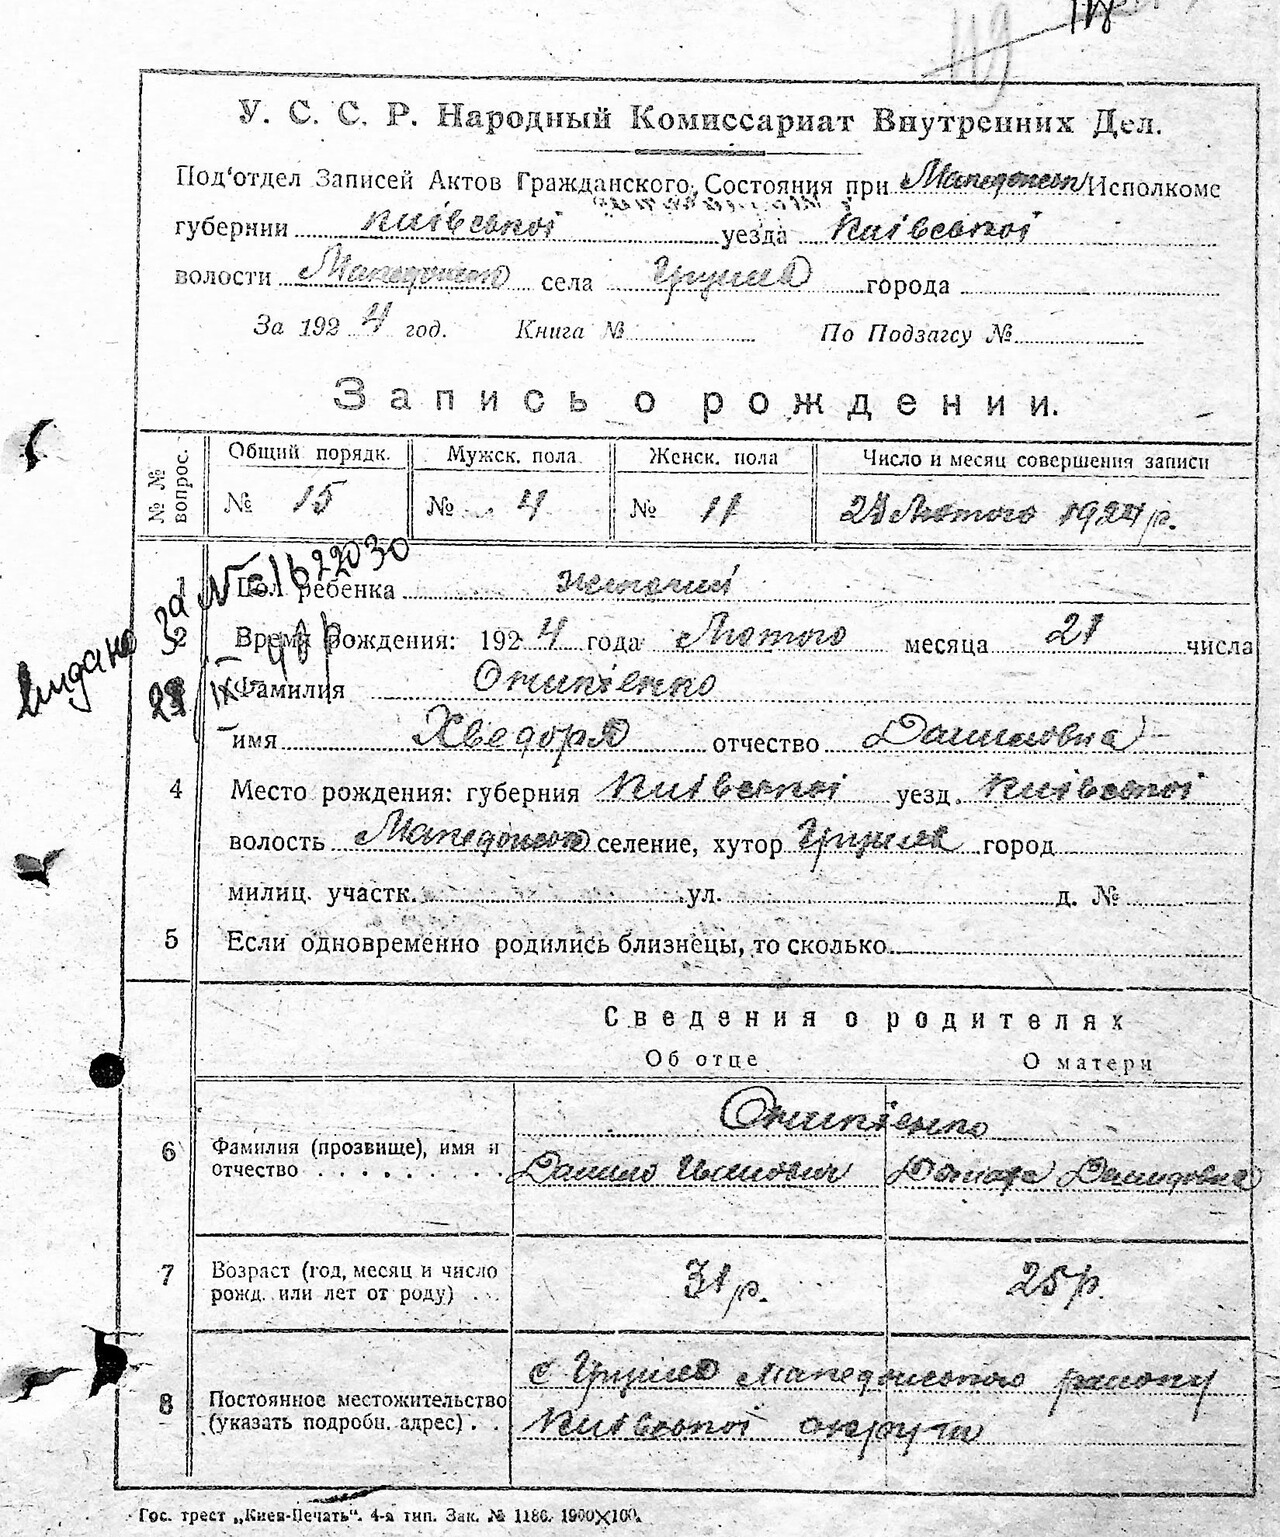 119
У. С. С. Р. Народный Комиссариат Внутренних Дел.
Под'отдел Записей Актов Гражданского Состояния при Македонськ Исполкоме
губернии Київської уезда Київської
волости Македонськ села Грицив города
За 1924 год. Книга № По Подзагсу №
Запись о рождении.
№ № вопрос. Общий порядк. Мужск. пола Женск. пола Число и месяц совершения записи
№ 15 № 4 № 11 Лютого 1924 р.
видано за № 1622030
1 Пол ребенка женочий
2 Время рождения: 1924 года Лютого месяца 21 числа
Фамилия
имя Хведоря отчество Даниловна
4 Место рождения: губерния Київської уезд. Київської
волость Македонськ селение, хутор город
милиц. участк. ул. д. №
5 Если одновременно родились близнецы, то сколько
Сведения о родителях
Об отце О матери
6 Фамилия (прозвище), имя и отчество
Данило Иванович Давидовна
7 Возраст (год, месяц и число рожд. или лет от роду) 31 р. 25 р.
8 Постоянное местожительство (указать подробн. адрес)
с Македонського району
Київської округи
Гос. трест „Киев-Печать“. 4-я тип. Зак. № 1186. 1900×100.